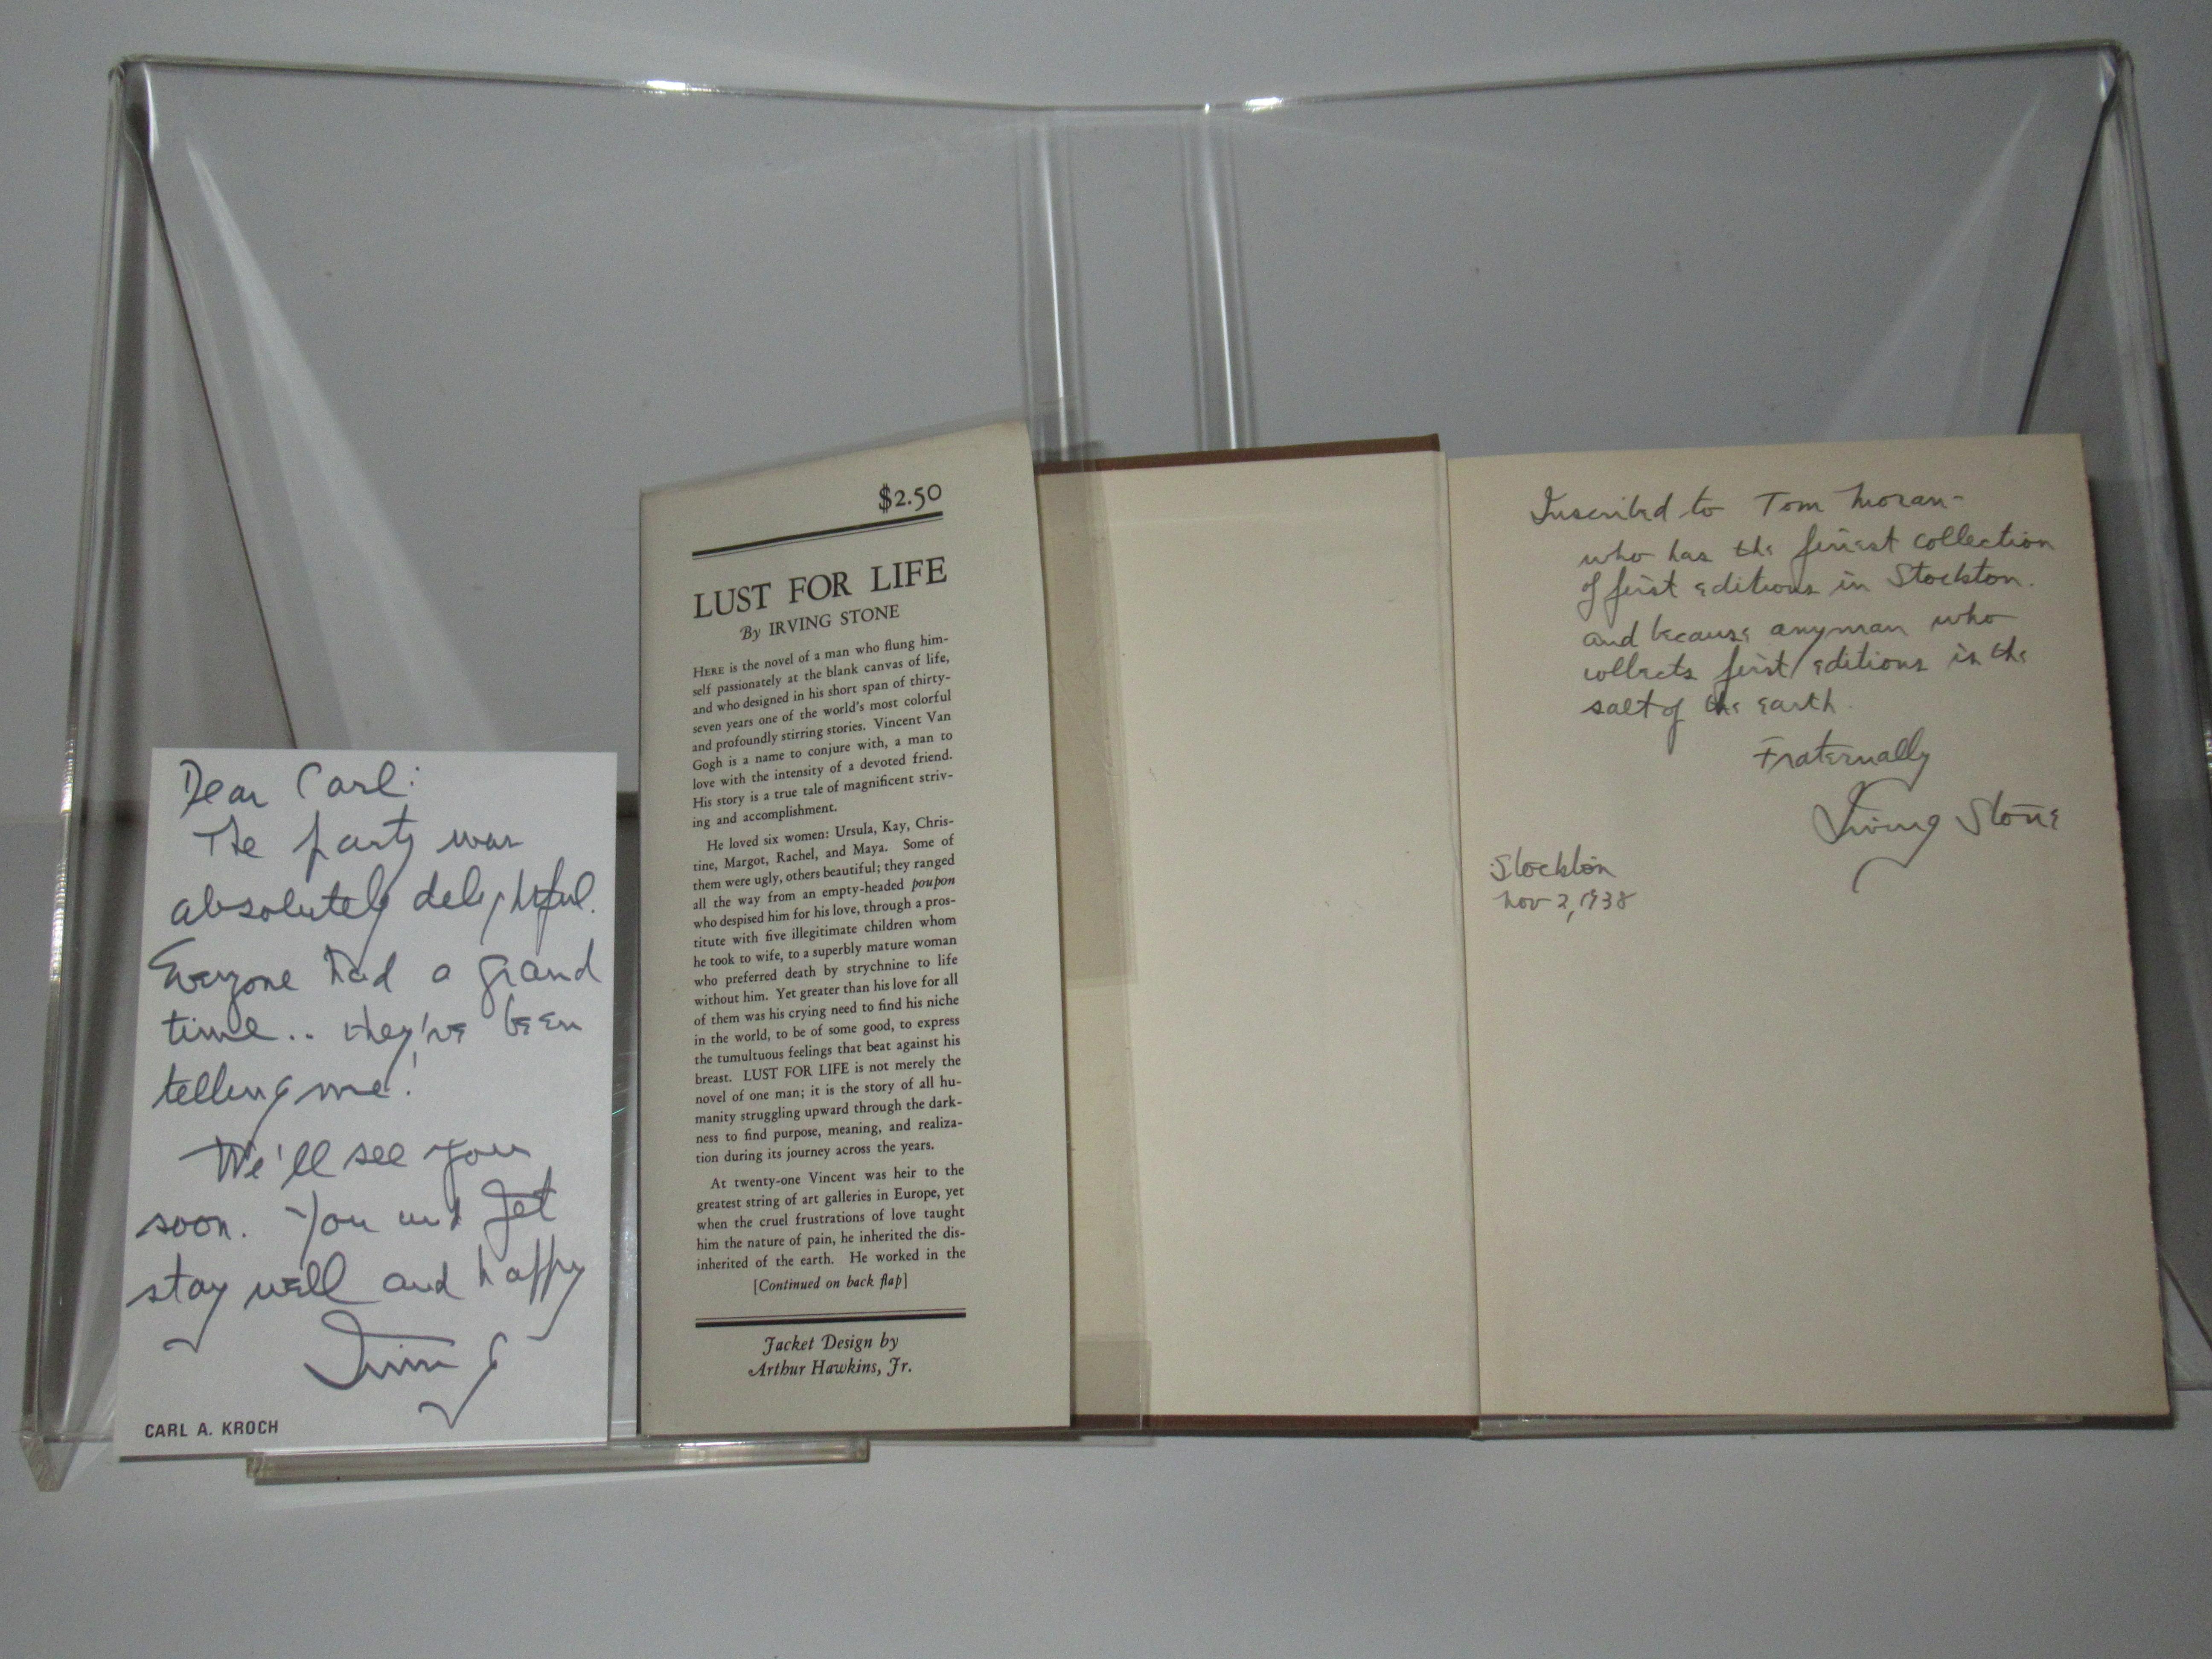 Dear Carl:
The party was
absolutely delightful.
Everyone had a grand
time.. they've been
telling me!
We'll see you
soon. You and Jet
stay well and happy
Irving
CARL A. KROCH
$2.50
LUST FOR LIFE
By IRVING STONE
HERE is the novel of a man who flung him-
self passionately at the blank canvas of life,
and who designed in his short span of thirty-
seven years one of the world's most colorful
and profoundly stirring stories. Vincent Van
Gogh is a name to conjure with, a man to
love with the intensity of a devoted friend.
His story is a true tale of magnificent striv-
ing and accomplishment.
He loved six women: Ursula, Kay, Chris-
tine, Margot, Rachel, and Maya. Some of
them were ugly, others beautiful; they ranged
all the way from an empty-headed poupon
who despised him for his love, through a pros-
titute with five illegitimate children whom
he took to wife, to a superbly mature woman
who preferred death by strychnine to life
without him. Yet greater than his love for all
of them was his crying need to find his niche
in the world, to be of some good, to express
the tumultuous feelings that beat against his
breast. LUST FOR LIFE is not merely the
novel of one man; it is the story of all hu-
manity struggling upward through the dark-
ness to find purpose, meaning, and realiza-
tion during its journey across the years.
At twenty-one Vincent was heir to the
greatest string of art galleries in Europe, yet
when the cruel frustrations of love taught
him the nature of pain, he inherited the dis-
inherited of the earth. He worked in the
[Continued on back flap]
Jacket Design by
Arthur Hawkins, Jr.
Inscribed to Tom Moran-
who has the finest collection
of first editions in Stockton.
and because anyman who
collects first editions is the
salt of the earth.
Fraternally
Irving Stone
Stockton
Nov 2, 1938